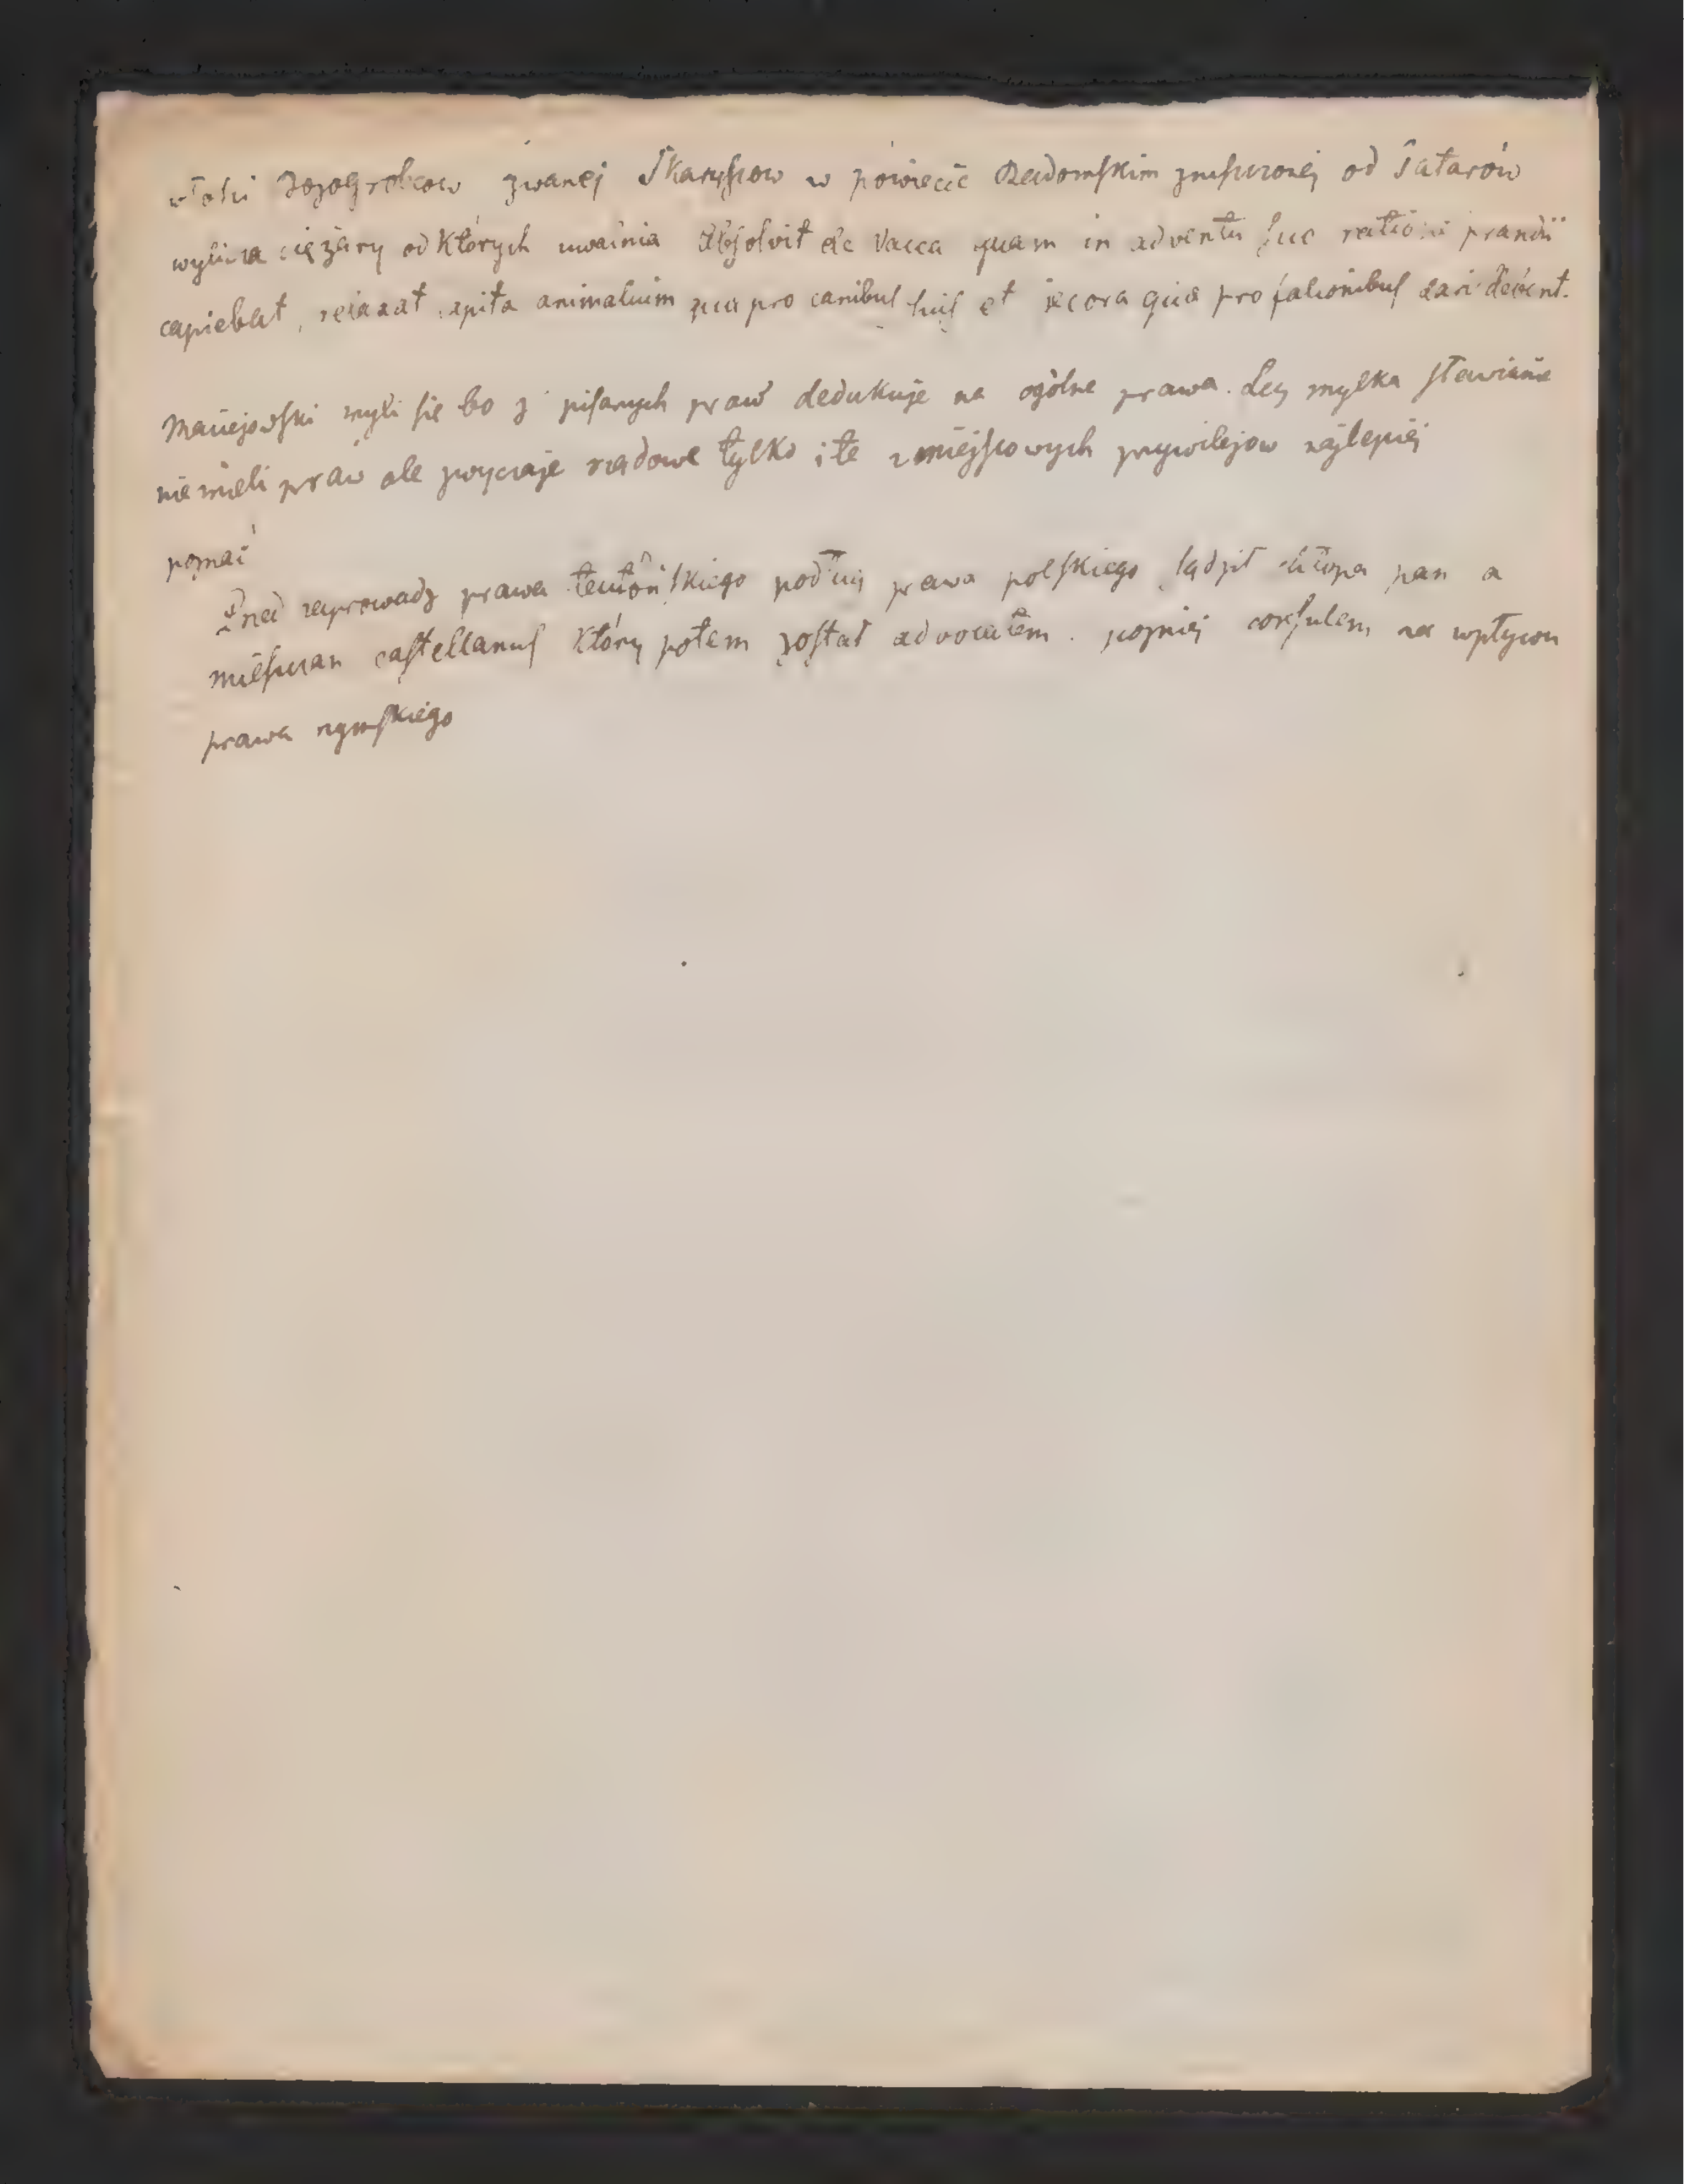 włości Bozogrobcow zwanej Skaryszow w powiecie Radomskim zniszczonej od Tatarów
wylicza ciężary od których uwalnia Absolvit de vacca quam in adventu suo rationi prandii
capiebat, relaxat capita animalium quae pro canibus suis et jecora quae pro falconibus dari debent.
Maciejowski myli się bo z pisanych praw dedukuje na ogólne prawa. Lecz mylka Sławianie
nie mieli praw ale zwyczaje rządowe tylko i te z miejscowych przywilejow najlepiej
poznać
Przed zaprowadz prawa teutońskiego podług prawa polskiego sądził chłopa pan a
mieszczan castellanus który potem został advocatem. pozniej consulem za wpływem
prawa rzymskiego